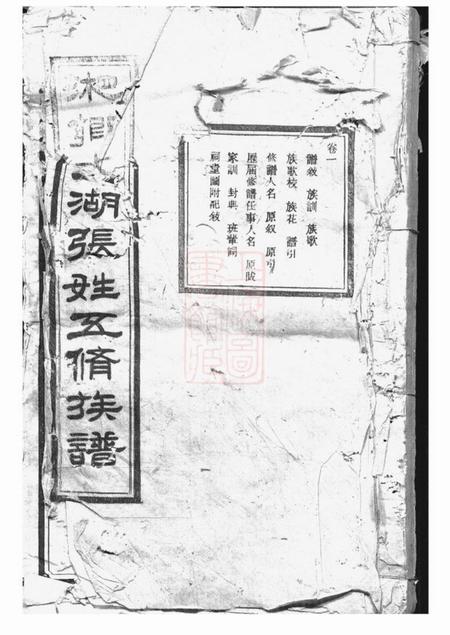 卷一
譜敘 族訓 族歌
族歌校 族花 譜引
修譜人名 原敘 原引
歷屆修譜任事人名 原跋
家訓 封典 班輩詞
祠堂圖附記敘
湖張姓五脩族譜